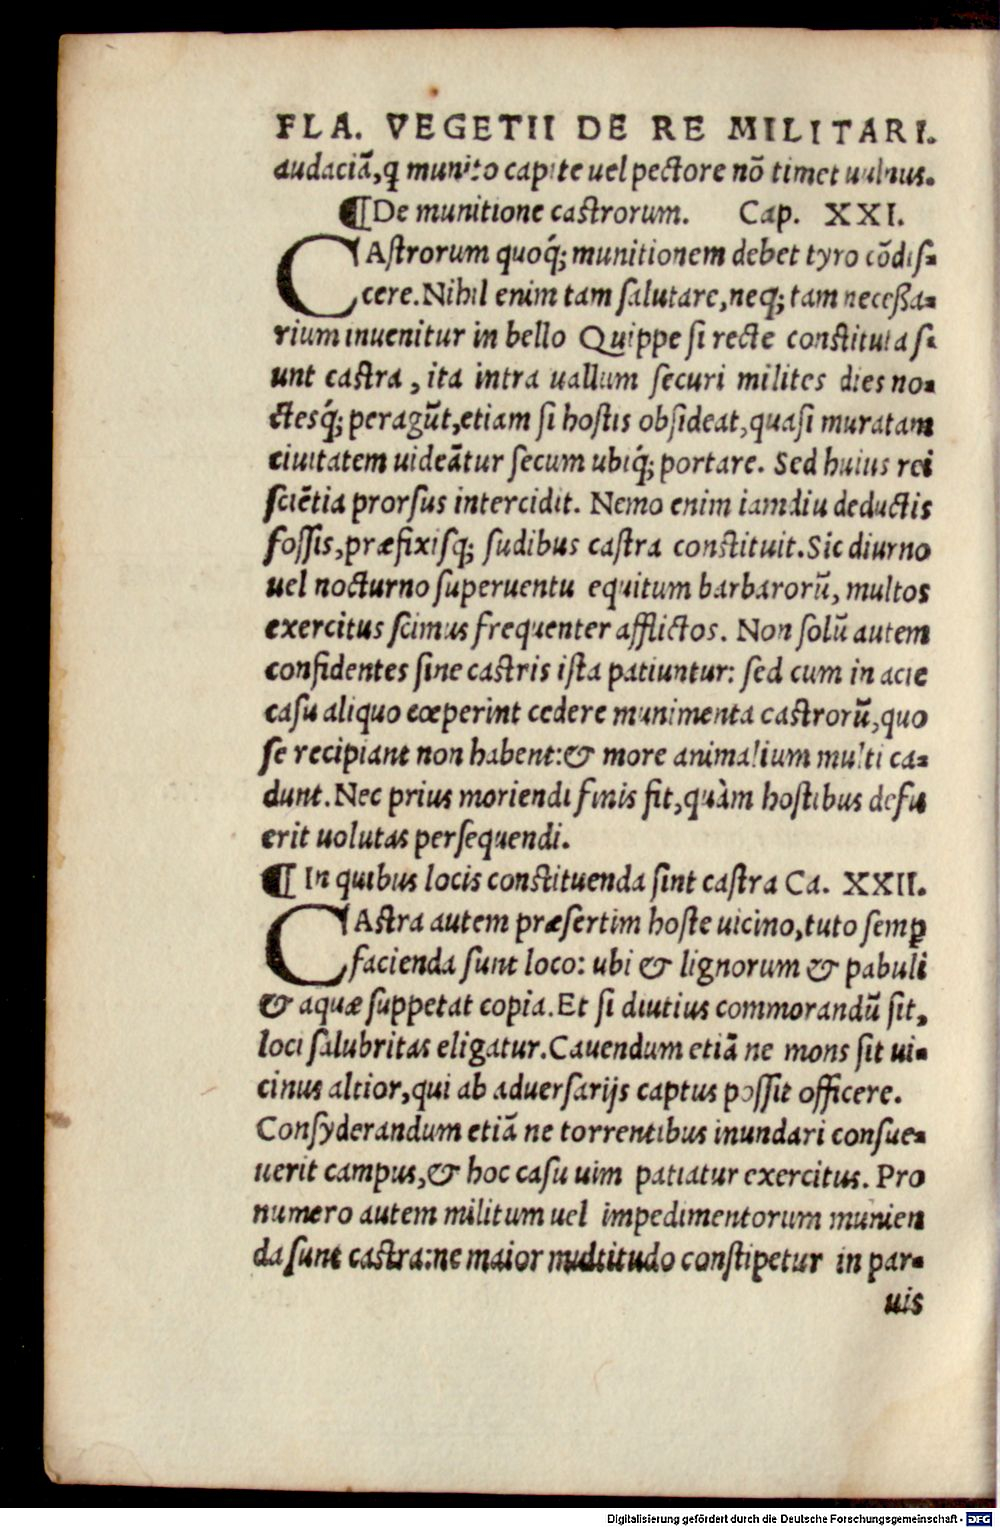 FLA. VEGETII DE RE MILITARI.
audaciā, q munito capite uel pectore nō timet uulnus.
¶ De munitione castrorum. Cap. XXI.
CAstrorum quoq́; munitionem debet tyro cōdiſ⸗
cere. Nihil enim tam ſalutare, neq; tam neceßa⸗
rium inuenitur in bello Quippe ſi recte constituta ſ⸗
unt castra, ita intra uallum ſecuri milites dies no⸗
ctesq́; peragūt, etiam ſi hoſtis obſideat, quaſi muratam
ciuitatem uideātur ſecum ubiq́; portare. Sed huius rei
ſciētia prorſus intercidit. Nemo enim iamdiu deductis
foſſis, præfixiſq; ſudibus castra constituit. Sic diurno
uel nocturno ſuperuentu equitum barbarorū, multos
exercitus ſcimus frequenter afflictos. Non ſolū autem
confidentes ſine castris iſta patiuntur: ſed cum in acie
caſu aliquo cœperint cedere munimenta castrorū, quo
ſe recipiant non habent: & more animalium multi ca⸗
dunt. Nec prius moriendi finis fit, quàm hoſtibus defu
erit uolutas perſequendi.
¶ In quibus locis constituenda ſint castra Ca. XXII.
CAſtra autem præſertim hoſte uicino, tuto ſemꝑ
facienda ſunt loco: ubi & lignorum & pabuli
& aquæ ſuppetat copia. Et ſi diutius commorandū ſit,
loci ſalubritas eligatur. Cauendum etiā ne mons ſit ui⸗
cinus altior, qui ab aduerſarijs captus poſſit officere.
Conſyderandum etiā ne torrentibus inundari conſue⸗
uerit campus, & hoc caſu uim patiatur exercitus. Pro
numero autem militum uel impedimentorum munien
da ſunt castra: ne maior multitudo conſtipetur in par⸗
uis
Digitalisierung gefördert durch die Deutsche Forschungsgemeinschaft - DFG